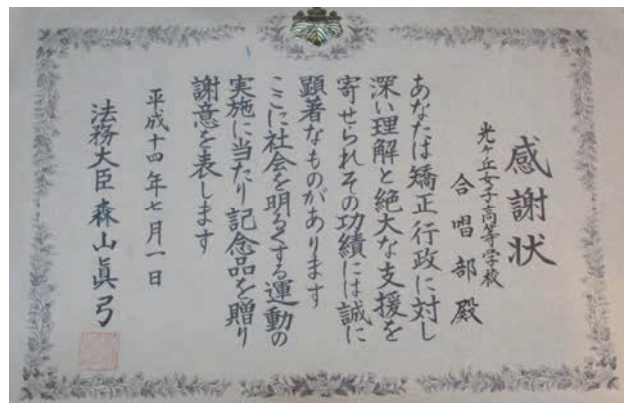 感謝状
光ヶ丘女子高等学校
合唱部殿
あなたは矯正行政に対し
深い理解と絶大な支援を
寄せられその功績には誠に
顕著なものがあります
ここに社会を明るくする運動の
実施に当たり記念品を贈り
謝意を表します
平成十四年七月一日
法務大臣 森山眞弓